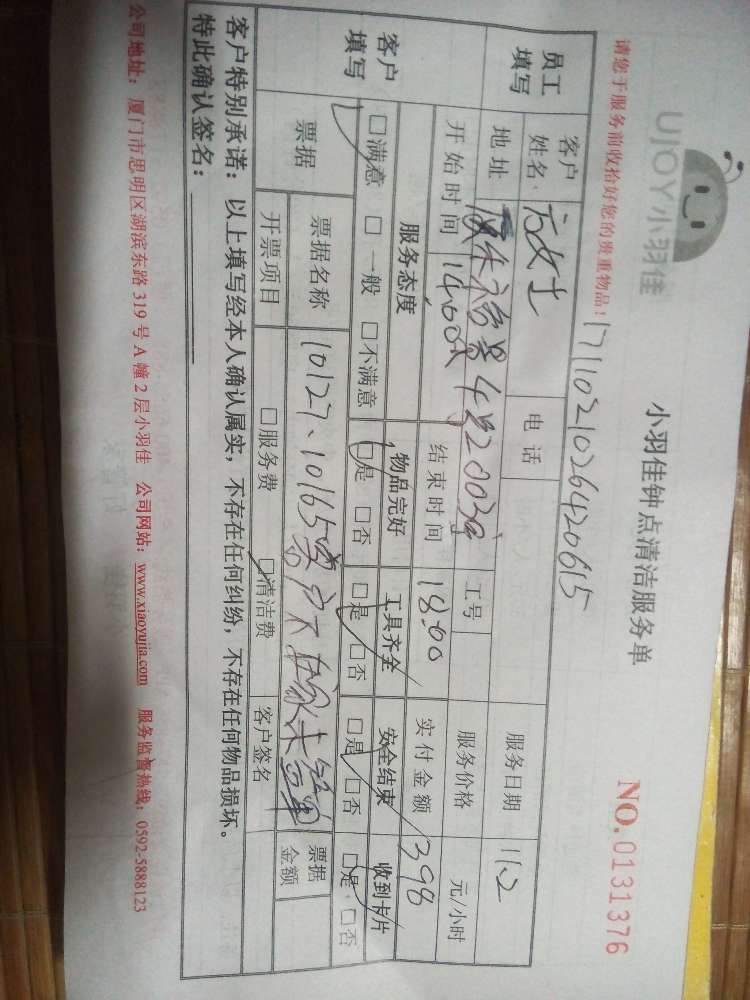 UJOY小羽佳
小羽佳钟点清洁服务单
NO.0131376
请您于服务前收拾好您的贵重物品！
1711021026420615
员工填写
客户姓名：
方女士
电话
服务日期
11.2
地址
482003
工号
服务价格
元/小时
开始时间
14:00
结束时间
18:00
实付金额
398
客户填写
服务态度
物品完好
工具齐全
安全结束
收到卡片
☑满意 □一般 □不满意
☑是 □否
☑是 □否
☑是 □否
☑是 □否
票据
票据名称
10127、10165客户不在家未签单
票据金额
开票项目
□服务费
☑清洁费
客户签名
客户特别承诺：以上填写经本人确认属实，不存在任何纠纷，不存在任何物品损坏。
特此确认签名：
公司地址：厦门市思明区湖滨东路 319 号 A 幢 2 层小羽佳 公司网站：www.xiaoyujia.com 服务监督热线：0592-5888123